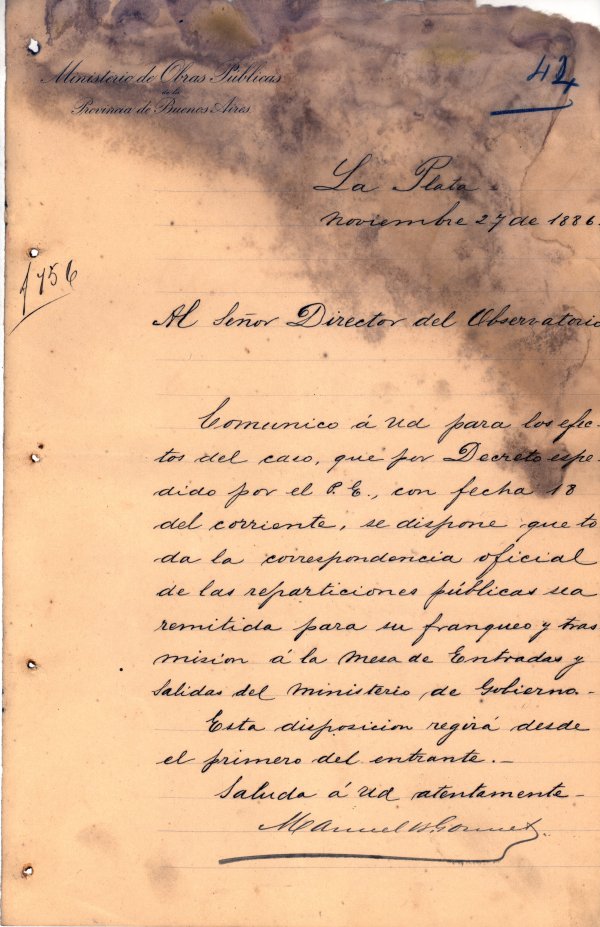 Ministerio de Obras Públicas
de la
Provincia de Buenos Aires
42
La Plata
Noviembre 27 de 1886.
1756
Al Señor Director del Observatorio
Comunico á Ud para los efec-
tos del caso, que por Decreto espe-
dido por el P. E., con fecha 18
del corriente, se dispone que to
da la correspondencia oficial
de las reparticiones públicas sea
remitida para su franqueo y tras
mision á la Mesa de Entradas y
Salidas del Ministerio de Gobierno.-
Esta disposicion regirá desde
el primero del entrante.-
Saluda á Ud atentamente-
Manuel B. Gonnet